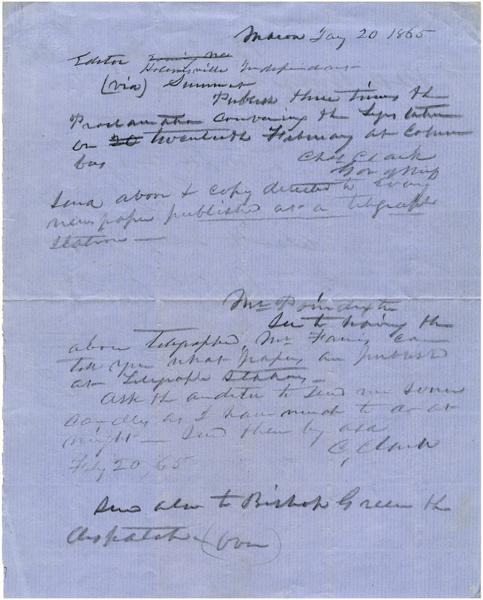 Macon Jay 20 1865
Editor
Holmesville Independent
(via) Summit
Publish three times the
Proclamation convening the Legislature
on 20 twentieth February at Colum
bus
Chas Clark
Gov of Miss
Send above & copy directed to every
newspaper published at a telegraph
station —
Mr Poindexter
See to having the
above telegraphed. Mr Farris can
tell you what papers are published
at Telegraph Stations —
Ask the auditor to send me some
candles as I have much to do at
night — Send them by
C, Clark
Feby 20/65
Send also to Bishop Green the
dispatch (over)